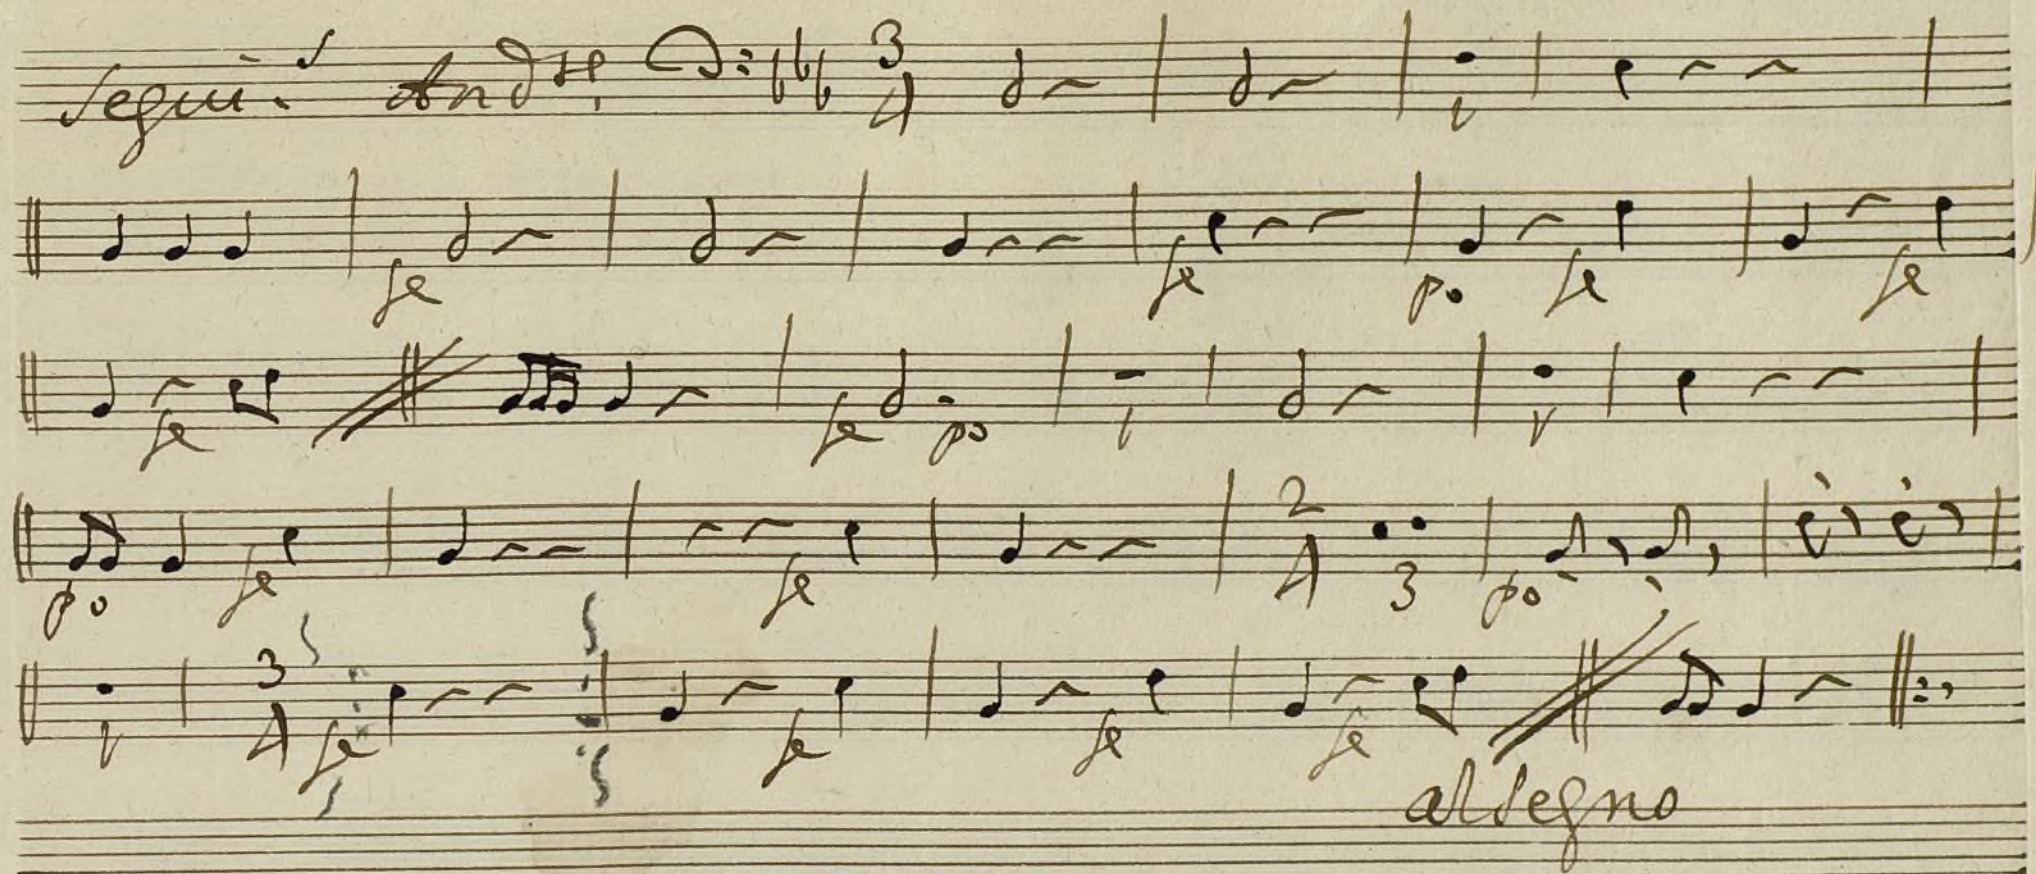 Segui: And.te 3 4
fe fe po fe fe
fe fe po
po fe fe 2 4 3 po
3 4 fe fe fe fe
al Segno